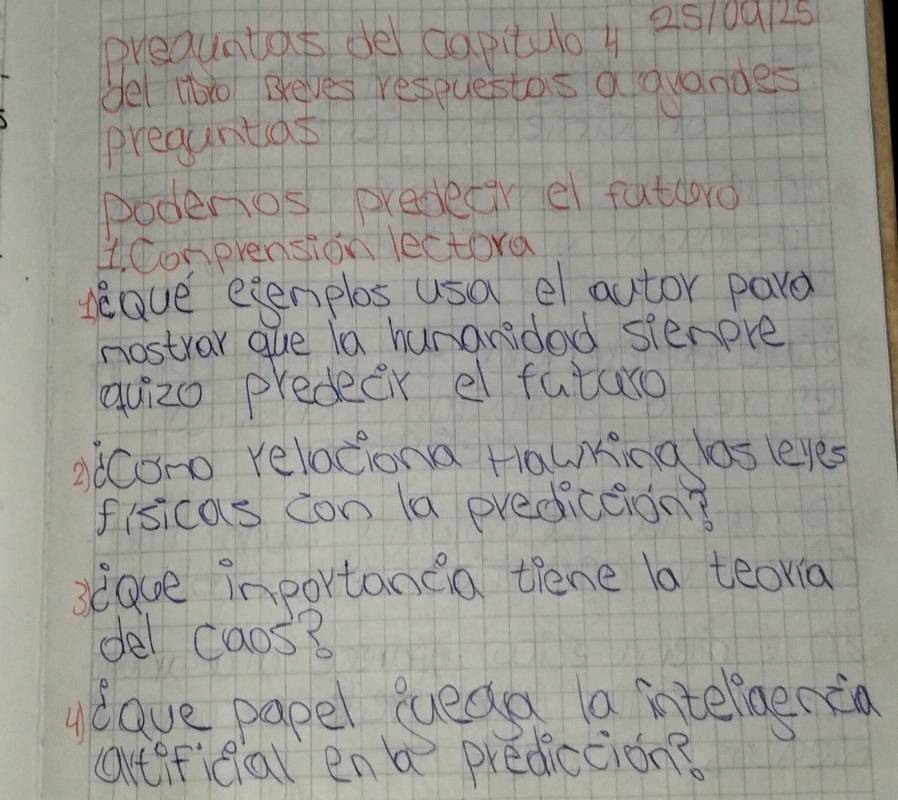 preguntas del capitulo 4 25/09/25
del libro Breves respuestas a grandes
preguntas
podemos predecir el futuro
1. Comprensión lectora
1) ¿Qué ejemplos usa el autor para
mostrar que la humanidad siempre
quizo predecir el futuro
2) ¿Como relaciona Hawking las leyes
fisicas con la predicción?
3) ¿Que importancia tiene la teoria
del caos?
4) ¿Que papel juega la inteligencia
artificial en la predicción?